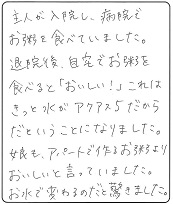 主人が入院し、病院で
お粥を食べていました。
退院後、自宅でお粥を
食べると「おいしい!」これは
きっと水がアクアス5だから
だということになりました。
娘も、アパートで作るお粥より
おいしいと言っていました。
お水で変わるのだと驚きました。